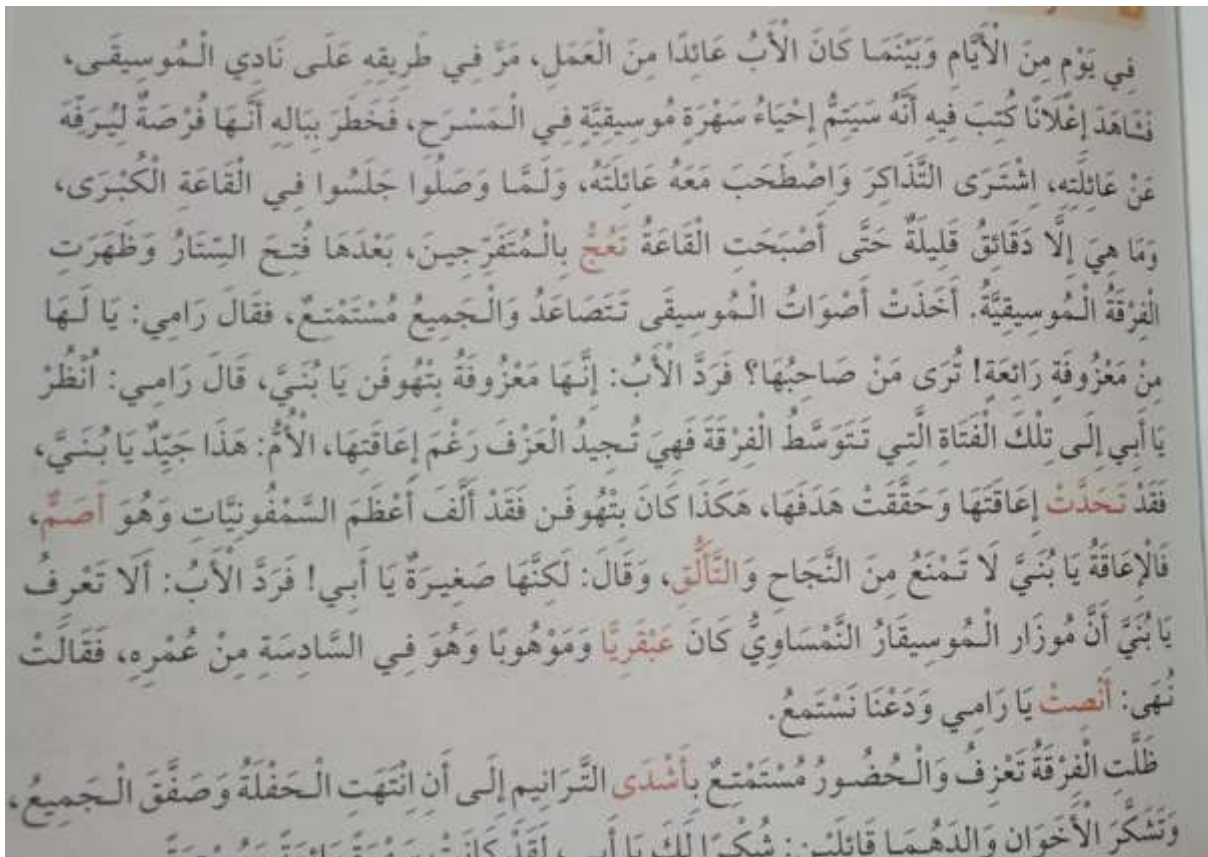 فِي يَوْمٍ مِنَ الْأَيَّامِ وَبَيْنَمَا كَانَ الْأَبُ عَائِدًا مِنَ الْعَمَلِ، مَرَّ فِي طَرِيقِهِ عَلَى نَادِي الْمُوسِيقَى،
فَشَاهَدَ إِعْلَانًا كُتِبَ فِيهِ أَنَّهُ سَيَتِمُّ إِحْيَاءُ سَهْرَةٍ مُوسِيقِيَّةٍ فِي الْمَسْرَحِ، فَخَطَرَ بِبَالِهِ أَنَّهَا فُرْصَةٌ لِيُرَفِّهَ
عَنْ عَائِلَتِهِ، اِشْتَرَى التَّذَاكِرَ وَاصْطَحَبَ مَعَهُ عَائِلَتَهُ، وَلَمَّا وَصَلُوا جَلَسُوا فِي الْقَاعَةِ الْكُبْرَى،
وَمَا هِيَ إِلَّا دَقَائِقُ قَلِيلَةٌ حَتَّى أَصْبَحَتِ الْقَاعَةُ تَعُجُّ بِالْمُتَفَرِّجِينَ، بَعْدَهَا فُتِحَ السِّتَارُ وَظَهَرَتِ
الْفِرْقَةُ الْمُوسِيقِيَّةُ. أَخَذَتْ أَصْوَاتُ الْمُوسِيقَى تَتَصَاعَدُ وَالْجَمِيعُ مُسْتَمْتِعٌ، فَقَالَ رَامِي: يَا لَهَا
مِنْ مَعْزُوفَةٍ رَائِعَةٍ! تُرَى مَنْ صَاحِبُهَا؟ فَرَدَّ الْأَبُ: إِنَّهَا مَعْزُوفَةُ بِتْهُوفَن يَا بُنَيَّ، قَالَ رَامِي: اُنْظُرْ
يَا أَبِي إِلَى تِلْكَ الْفَتَاةِ الَّتِي تَتَوَسَّطُ الْفِرْقَةَ فَهِيَ تُجِيدُ الْعَزْفَ رَغْمَ إِعَاقَتِهَا، الْأُمُّ: هَذَا جَيِّدٌ يَا بُنَيَّ،
فَقَدْ تَحَدَّتْ إِعَاقَتَهَا وَحَقَّقَتْ هَدَفَهَا، هَكَذَا كَانَ بِتْهُوفَن فَقَدْ أَلَّفَ أَعْظَمَ السَّمْفُونِيَّاتِ وَهُوَ أَصَمٌّ،
فَالْإِعَاقَةُ يَا بُنَيَّ لَا تَمْنَعُ مِنَ النَّجَاحِ وَالتَّأَلُّقِ، وَقَالَ: لَكِنَّهَا صَغِيرَةٌ يَا أَبِي! فَرَدَّ الْأَبُ: أَلَا تَعْرِفُ
يَا بُنَيَّ أَنَّ مُوزَار الْمُوسِيقَارُ النَّمْسَاوِيُّ كَانَ عَبْقَرِيًّا وَمَوْهُوبًا وَهُوَ فِي السَّادِسَةِ مِنْ عُمْرِهِ، فَقَالَتْ
نُهَى: أَنْصِتْ يَا رَامِي وَدَعْنَا نَسْتَمِعُ.
ظَلَّتِ الْفِرْقَةُ تَعْزِفُ وَالْحُضُورُ مُسْتَمْتِعٌ بِأَشْدَى التَّرَانِيمِ إِلَى أَنِ انْتَهَتِ الْحَفْلَةُ وَصَفَّقَ الْجَمِيعُ،
وَتَشَكَّرَ الْأَخَوَانِ وَالِدَهُمَا قَائِلَيْنِ: شُكْرًا لَكَ يَا أَبِي، لَقَدْ كَانَتْ